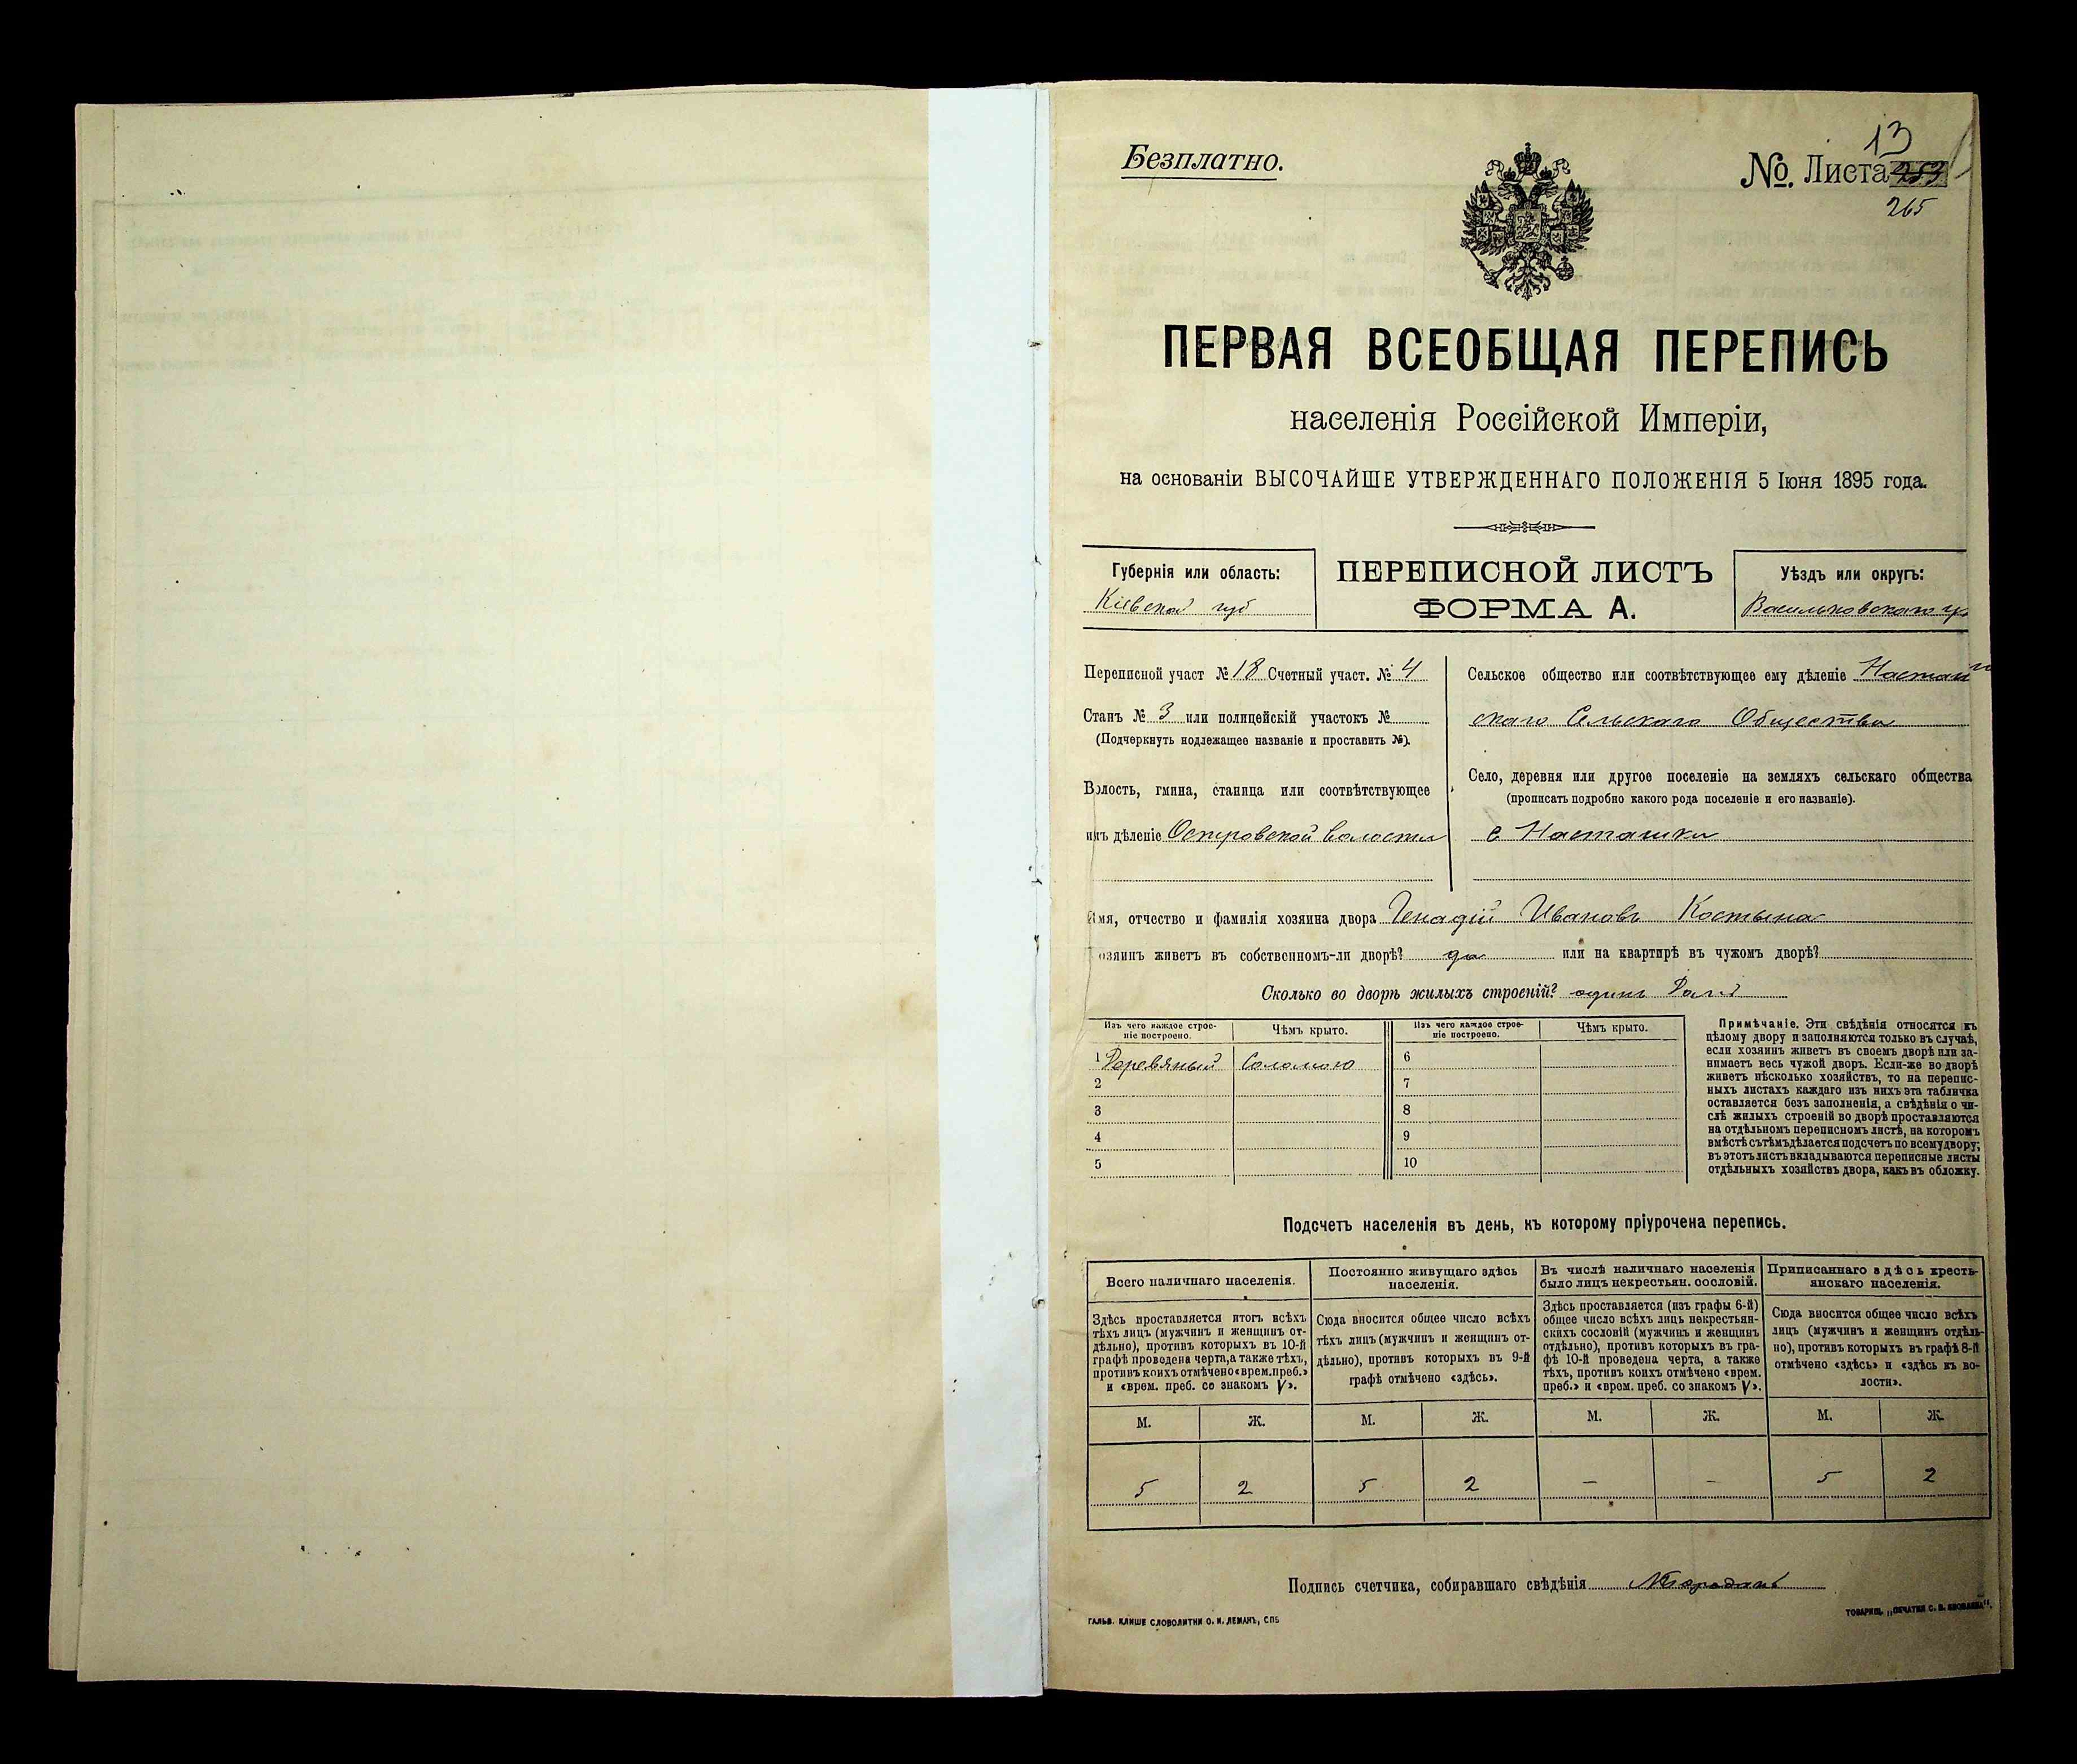 Безплатно.
13
№. Листа 253
265
ПЕРВАЯ ВСЕОБЩАЯ ПЕРЕПИСЬ
населенія Россійской Имперіи,
на основаніи ВЫСОЧАЙШЕ УТВЕРЖДЕННАГО ПОЛОЖЕНІЯ 5 Іюня 1895 года.
Губернія или область:
Кіевской губ
ПЕРЕПИСНОЙ ЛИСТЪ
ФОРМА А.
Уѣздъ или округъ:
Васильковскаго у
Переписной участ № 18 Счетный участ. № 4
Станъ № 3 или полицейскій участокъ №
(Подчеркнуть подлежащее названіе и проставить №).
Волость, гмина, станица или соотвѣтствующее
имъ дѣленіе Островской волости
Сельское общество или соотвѣтствующее ему дѣленіе Насташ
скаго Сельскаго Общества
Село, деревня или другое поселеніе на земляхъ сельскаго общества
(прописать подробно какого рода поселеніе и его названіе).
с Насташки
Имя, отчество и фамилія хозяина двора Генадій Ивановъ Костына
озяинъ живетъ въ собственномъ-ли дворѣ? да или на квартирѣ въ чужомъ дворѣ?
Сколько во дворѣ жилыхъ строеній? одинъ
Изъ чего каждое строе-
ніе построено.
Чѣмъ крыто.
Изъ чего каждое строе-
ніе построено.
Чѣмъ крыто.
1 Деревяный Соломою 6
2 7
3 8
4 9
5 10
Примѣчаніе. Эти свѣдѣнія относятся къ
цѣлому двору и заполняются только въ случаѣ,
если хозяинъ живетъ въ своемъ дворѣ или за-
нимаетъ весь чужой дворъ. Если-же во дворѣ
живетъ нѣсколько хозяйствъ, то на перепис-
ныхъ листахъ каждаго изъ нихъ эта табличка
оставляется безъ заполненія, а свѣдѣнія о чи-
слѣ жилыхъ строеній во дворѣ проставляются
на отдѣльномъ переписномъ листѣ, на которомъ
вмѣстѣ съ тѣмъ дѣлается подсчетъ по всему двору;
въ этотъ листъ вкладываются переписные листы
отдѣльныхъ хозяйствъ двора, какъ въ обложку.
Подсчетъ населенія въ день, къ которому пріурочена перепись.
Всего наличнаго населенія.
Здѣсь проставляется итогъ всѣхъ
тѣхъ лицъ (мужчинъ и женщинъ от-
дѣльно), противъ которыхъ въ 10-й
графѣ проведена черта, а также тѣхъ,
противъ коихъ отмѣчено «врем. преб.»
и «врем. преб. со знакомъ V».
Постоянно живущаго здѣсь
населенія.
Сюда вносится общее число всѣхъ
тѣхъ лицъ (мужчинъ и женщинъ от-
дѣльно), противъ которыхъ въ 9-й
графѣ отмѣчено «здѣсь».
Въ числѣ наличнаго населенія
было лицъ некрестьян. сословій.
Здѣсь проставляется (изъ графы 6-й)
общее число всѣхъ лицъ некрестьян-
скихъ сословій (мужчинъ и женщинъ
отдѣльно), противъ которыхъ въ гра-
фѣ 10-й проведена черта, а также
тѣхъ, противъ коихъ отмѣчено «врем.
преб.» и «врем. преб. со знакомъ V».
Приписаннаго здѣсь кресть-
янскаго населенія.
Сюда вносится общее число всѣхъ
лицъ (мужчинъ и женщинъ отдѣль-
но), противъ которыхъ въ графѣ 8-й
отмѣчено «здѣсь» и «здѣсь къ во-
лости».
М. Ж. М. Ж. М. Ж. М. Ж.
5 2 5 2 — — 5 2
Подпись счетчика, собиравшаго свѣдѣнія
ГАЛЬВ. КЛИШЕ СЛОВОЛИТНИ О. И. ЛЕМАНЪ, СПБ
ТОВАРИЩ. „ПЕЧАТНЯ С. П. ЯКОВЛЕВА“.